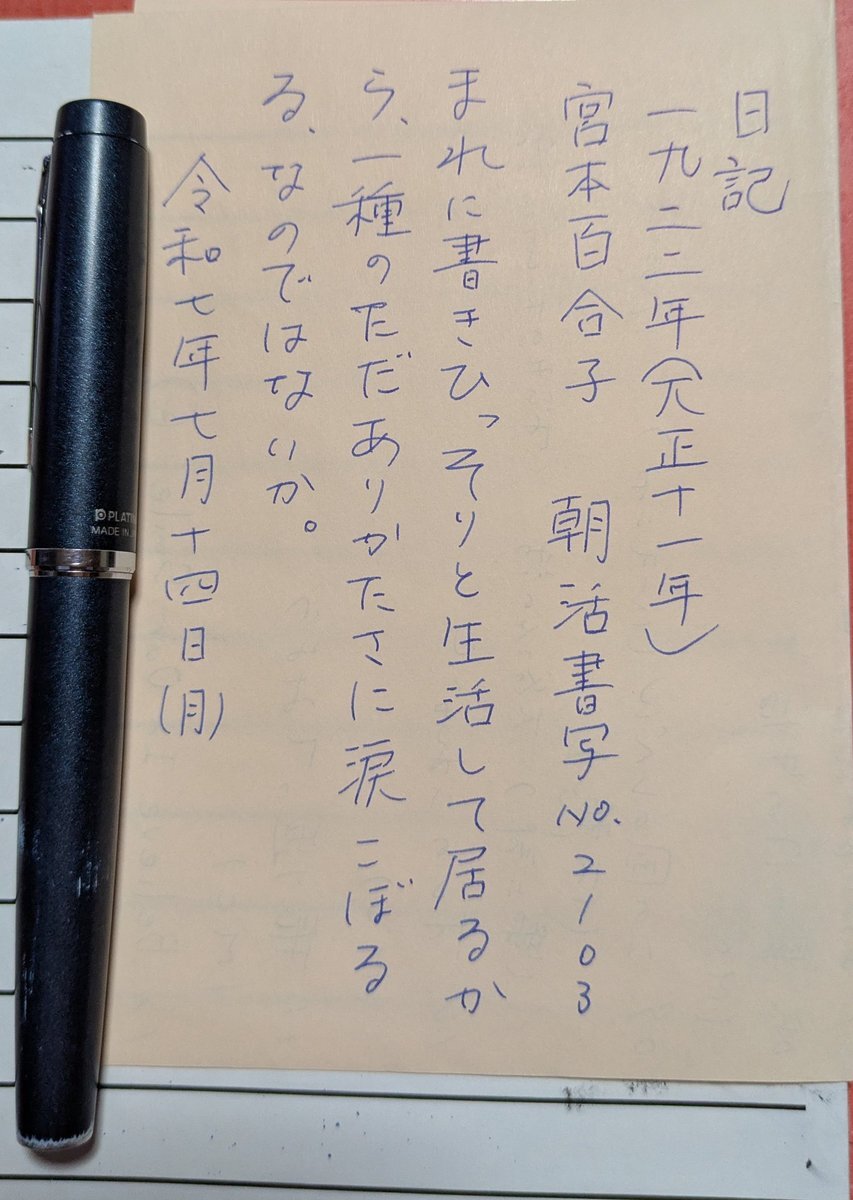 日記
一九二二年(大正十一年)
宮本百合子 朝活書写No.2103
まれに書きひっそりと生活して居るか
ら、一種のただありがたさに涙こぼる
る、なのではないか。
令和七年七月十四日(月)
PLATI
MADE IN